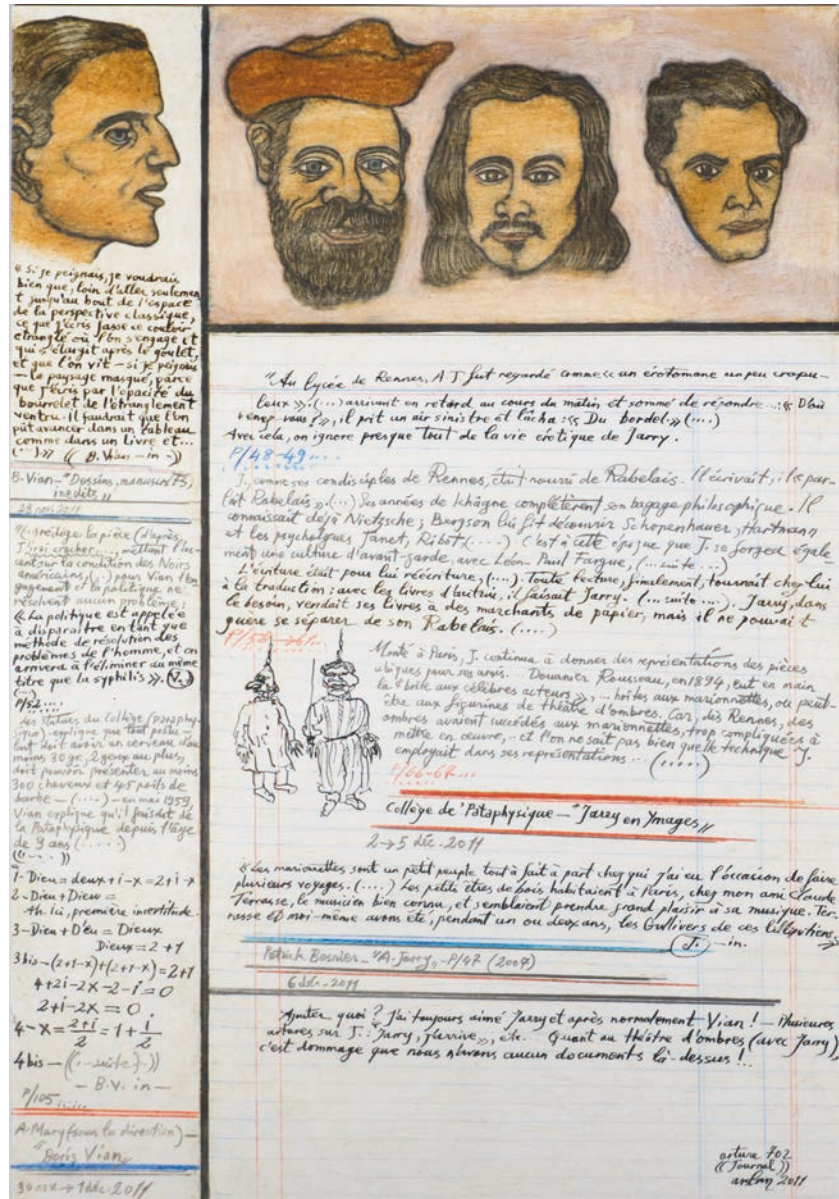 « Si je peignais, je voudrais
bien que, loin d'aller seulemen
t jusqu'au bout de l'espace
de la perspective classique,
ce que j'écris fasse ce couloir
étranglé où l'on s'engage et
qui s'élargit après le goulet,
et que l'on vit — si je peignais
— le paysage masqué, parce
que j'écris par l'opacité du
bourrelet de l'étranglement
ventru. Il faudrait que l'on
pût avancer dans un tableau
comme dans un livre et...
(...) » (( B. Vian — in — ))
B. Vian — "Dessins, manuscrits,
inédits"
28 nov. 2011
"(..) rédige la pièce (d'après
J'irai cracher..., mettant l'ac-
cent sur la condition des Noirs
américains, (..) pour Vian l'en
gagement et la politique ne
résolvent aucun problème :
« La politique est appelée
à disparaître en tant que
méthode de résolution des
problèmes de l'homme, et on
arrivera à l'éliminer au même
titre que la syphilis ». (V.)
(...)
P/52....
Les statues du Collège (pataphy-
sique) — explique que tout postu-
lant doit avoir un cerveau d'au
moins 30 gr., 2 yeux au plus,
doit pouvoir présenter au moins
300 cheveux et 45 poils de
barbe — (....) — en mai 1959,
Vian explique qu'il faisait de
la Pataphysique depuis l'âge
de 9 ans (.....)
((....))
1- Dieu = deux + i - x = 2 + i - x
2 - Dieu + Dieu =
th. Ici, première incertitude.
3 - Dieu + D'eu = Dieux
Dieux = 2 + 1
3 bis — (2+1-x)+(2+1-x) = 2+1
4 + 2i - 2x - 2 - i = 0
2 + i - 2x = 0
4 - x = 2+i/2 = 1 + i/2
4 bis — ((...suite...))
— B.V. in —
P/105.....
A. Mary (sous la direction) —
"Boris Vian"
30 nov → 1 déc. 2011
"Au lycée de Rennes, A J fut regardé comme « un érotomane un peu crapu-
leux ». (...) arrivant en retard au cours du matin et sommé de répondre ...: « D'où
venez-vous? », il prit un air sinistre et lâcha : « Du bordel. » (....)
Avec cela, on ignore presque tout de la vie érotique de Jarry.
P/48-49....
J., comme ses condisciples de Rennes, était nourri de Rabelais. Il écrivait, il « par-
lait Rabelais ». (...) Ses années de khâgne complétèrent son bagage philosophique. Il
connaissait déjà Nietzsche ; Bergson lui fit découvrir Schopenhauer, Hartmann
et les psychologues Janet, Ribot. (....) C'est à cette époque que J. se forgea égale-
ment une culture d'avant-garde, avec Léon-Paul Fargue, (... suite ...)
L'écriture était pour lui réécriture, (....). Toute lecture, finalement, tournait chez lui
à la traduction : avec les livres d'autrui, il faisait Jarry. (... suite ...). Jarry, dans
le besoin, vendait ses livres à des marchands de papier, mais il ne pouvait
guère se séparer de son Rabelais. (....)
Monté à Paris, J. continua à donner des représentations des pièces
ubiques pour ses amis... Douanier Rousseau, en 1894, eut en main
la « boîte aux célèbres acteurs », ... boîtes aux marionnettes, ou peut-
être aux figurines de théâtre d'ombres. Car, dès Rennes, des
ombres avaient succédés aux marionnettes, trop compliquées à
mettre en œuvre, .. et l'on ne sait pas bien quelle technique J.
employait dans ses représentations ... (.....)
P/66-67...
Collège de 'Pataphysique — "Jarry en Ymages"
2 → 5 déc. 2011
« Les marionettes sont un petit peuple tout à fait à part chez qui j'ai eu l'occasion de faire
plusieurs voyages. (....) Les petits êtres de bois habitaient à Paris, chez mon ami Claude
Terrasse, le musicien bien connu, et semblaient prendre grand plaisir à sa musique. Ter-
rasse et moi-même avons été, pendant un ou deux ans, les Gullivers de ces lilliputiens »
(J.) — in.
Patrick Besnier — "A. Jarry" — P/47 (2007)
6 déc. 2011
Ajouter quoi ? J'ai toujours aimé Jarry et après normalement Vian ! — Plusieures
artures sur J. : "Jarry, j'arrive", etc... Quant au théâtre d'ombres (avec Jarry)
c'est dommage que nous n'avons aucun documents là-dessus !...
arture 702
((Journal))
arslan 2011